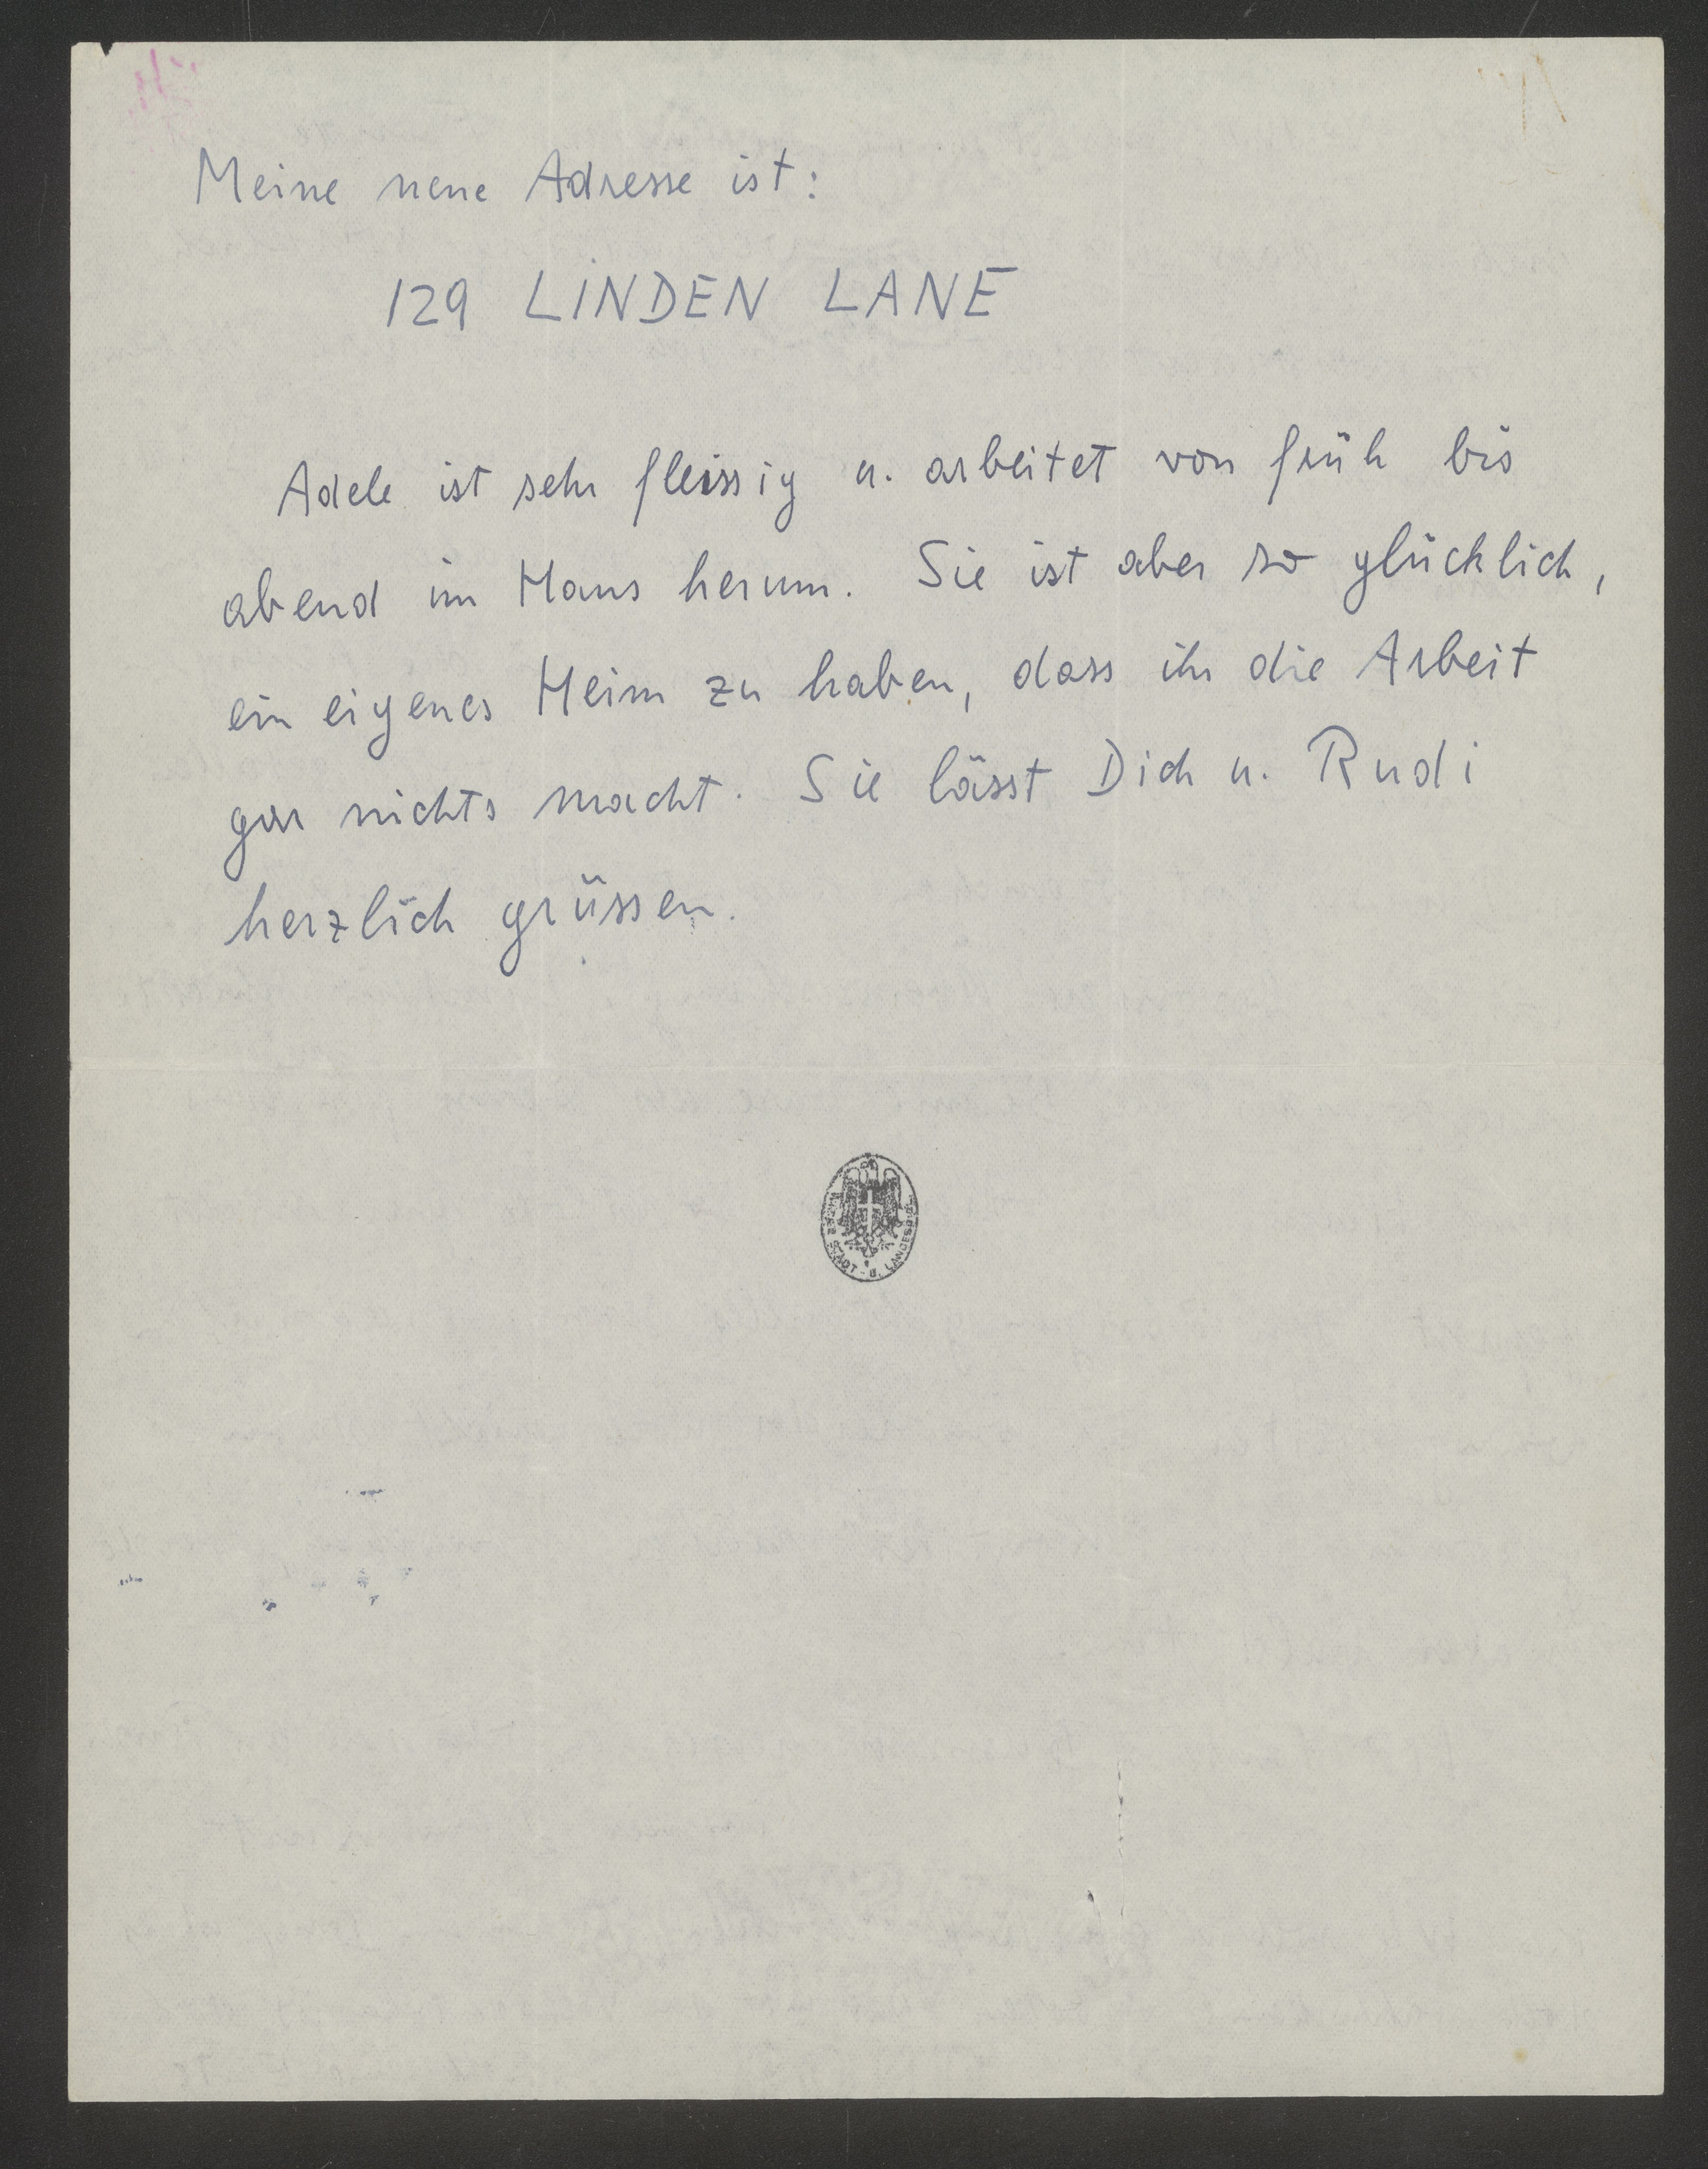 Meine neue Adresse ist:
129 LINDEN LANE
Adele ist sehr fleissig u. arbeitet von früh bis
abend im Haus herum. Sie ist aber so glücklich,
ein eigenes Heim zu haben, dass ihr die Arbeit
gar nichts macht. Sie lässt Dich u. Rudi
herzlich grüssen.
STADT- U. LANDESBIBL.